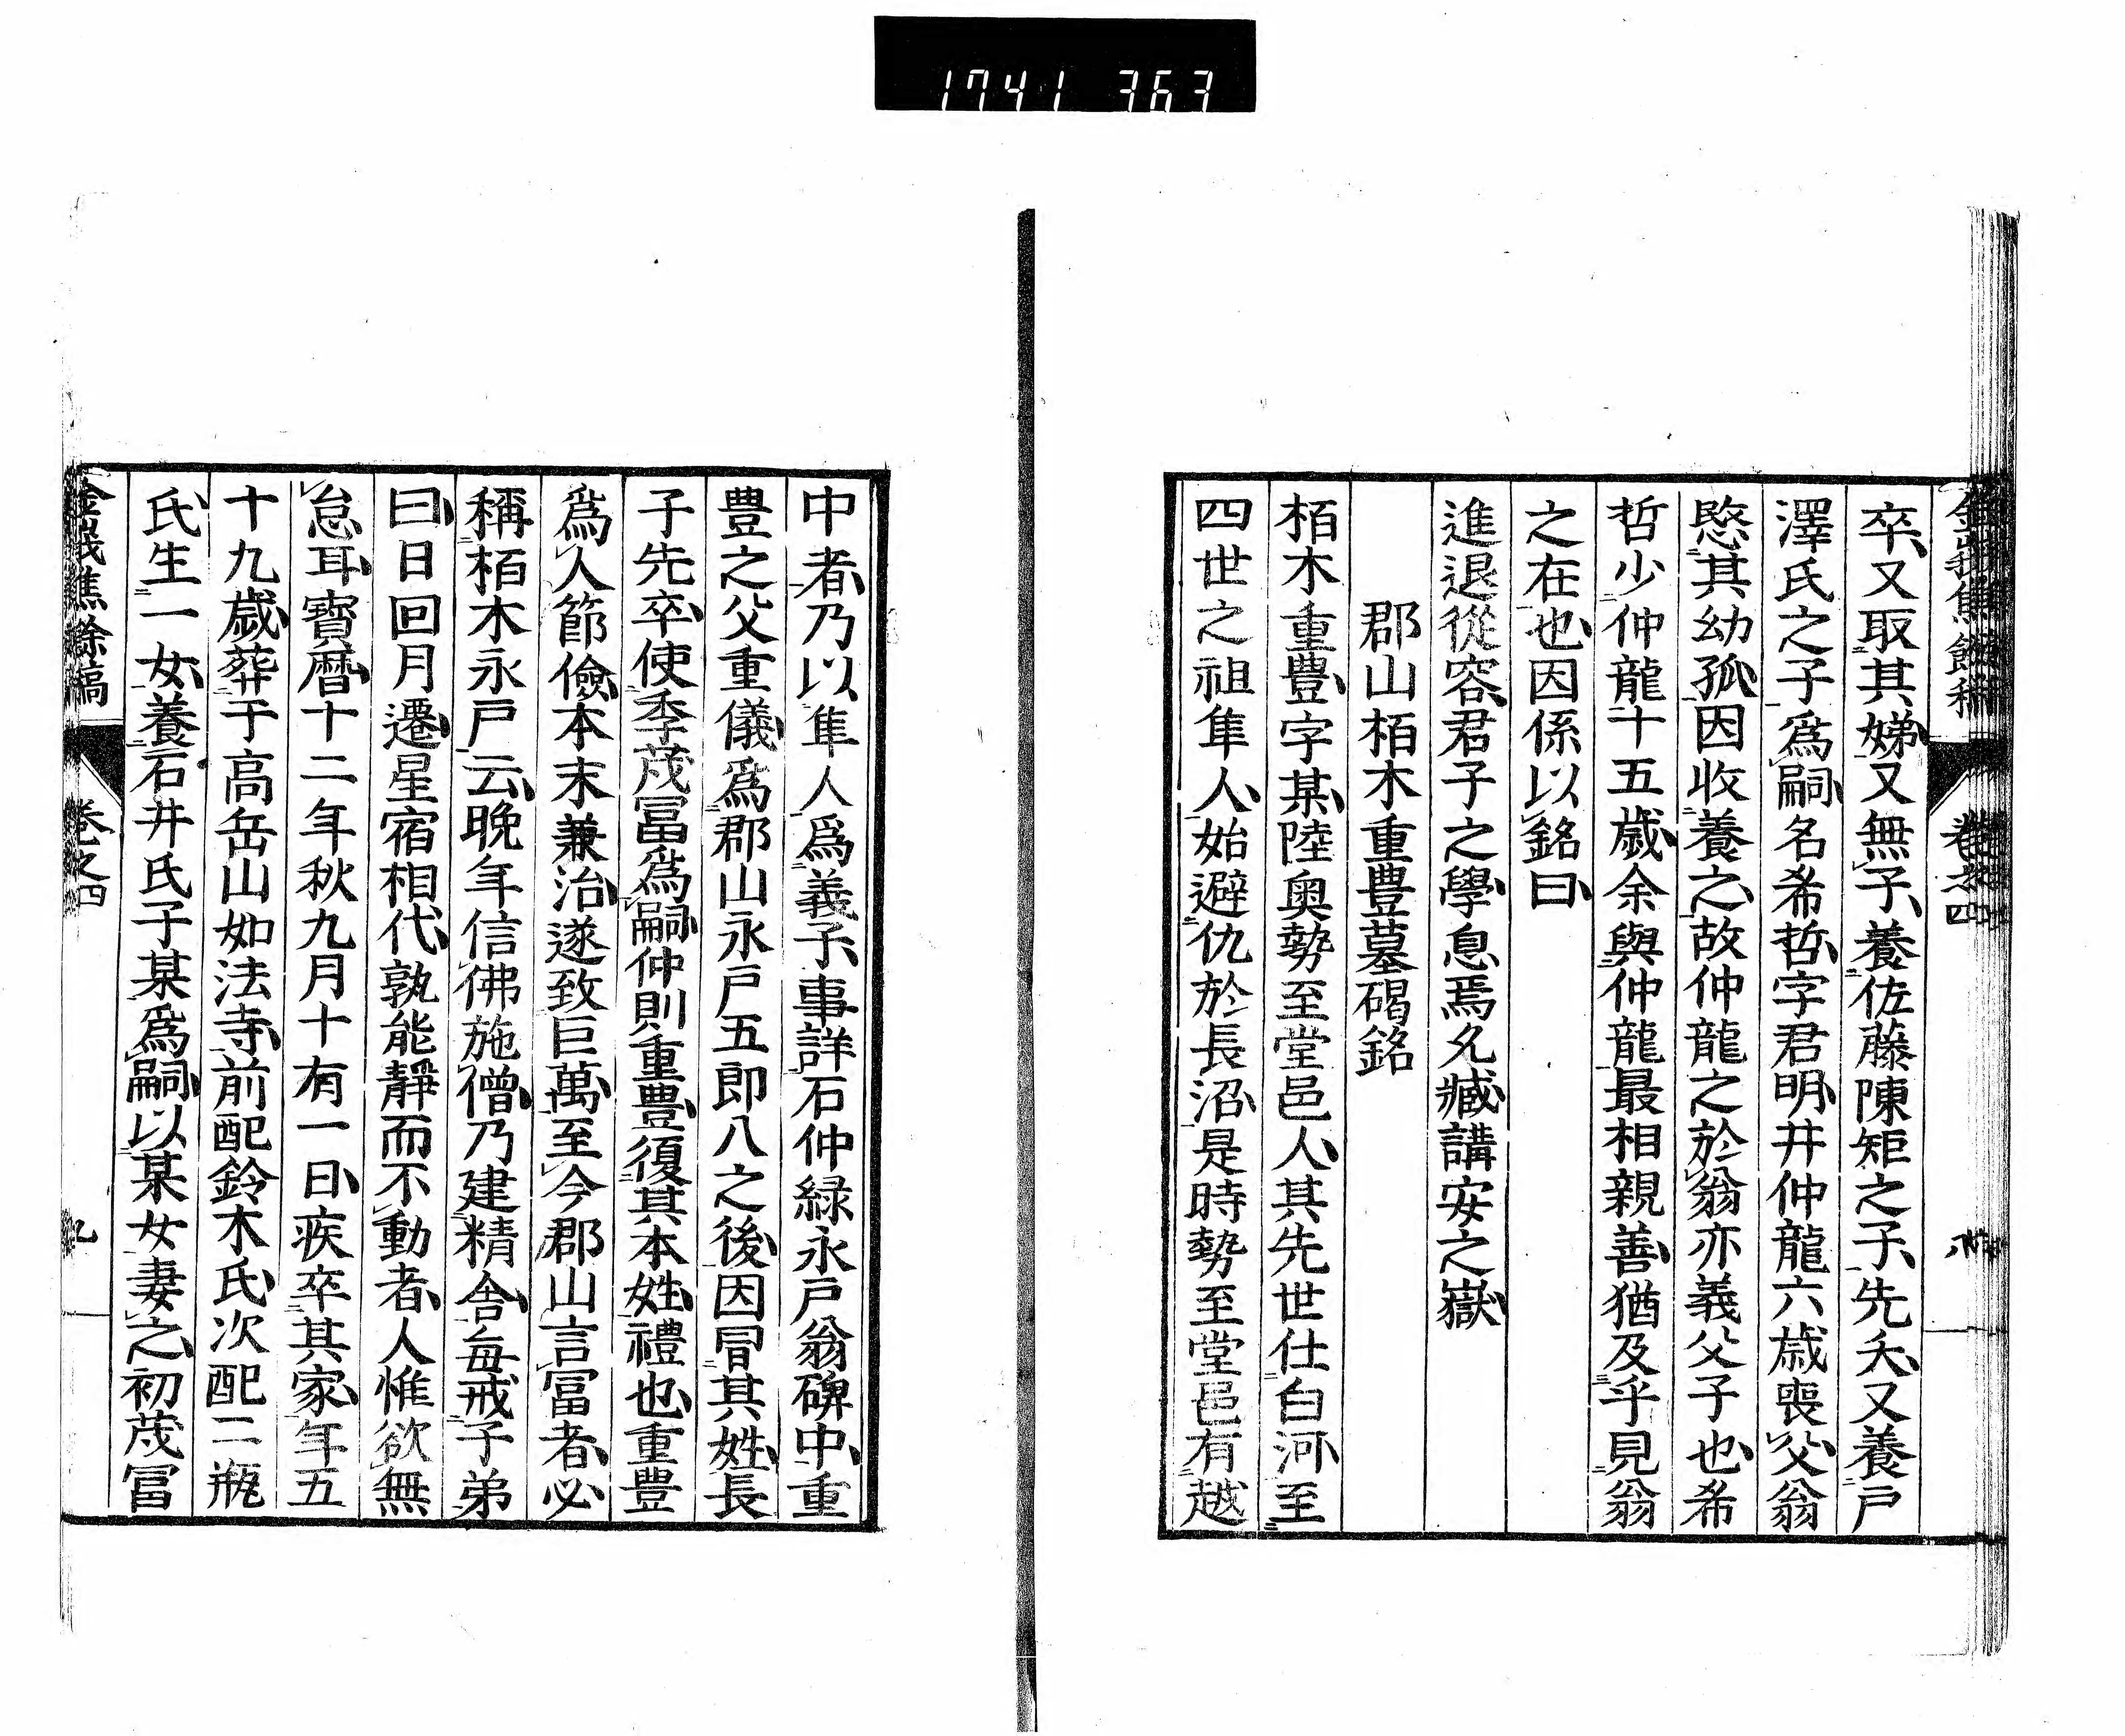 1741 363
卒又取其娣又無子養佐藤陳矩之子先夭又養戸
澤氏之子爲嗣名希哲字君明井仲龍六歳喪父翁
愍其幼孤因收養之故仲龍之於翁亦義父子也希
哲少仲龍十五歳余與仲龍最相親善猶及乎見翁
之在也因係以銘曰
進退從容君子之學息焉久臧講安之嶽
郡山栢木重豊墓碣銘
栢木重豊字某陸奥勢至堂邑人其先世仕白河至
四世之祖隼人始避仇於長沼是時勢至堂邑有越
中者乃以隼人爲義子事詳石仲緑永戸翁碑中重
豊之父重儀爲郡山永戸五郎八之後因冒其姓長
子先卒使季茂冨爲嗣仲則重豊復其本姓禮也重豊
爲人節儉本末兼治遂致巨萬至今郡山言冨者必
稱栢木永戸云晩年信佛施僧乃建精舎毎戒子弟
曰日回月遷星宿相代孰能靜而不動者人惟欲無
怠耳寶暦十二年秋九月十有一日疾卒其家年五
十九歳葬于高岳山如法寺前配鈴木氏次配二瓶
氏生一女養石井氏子某爲嗣以某女妻之初茂冨
金峩焦餘稿
卷之四
九